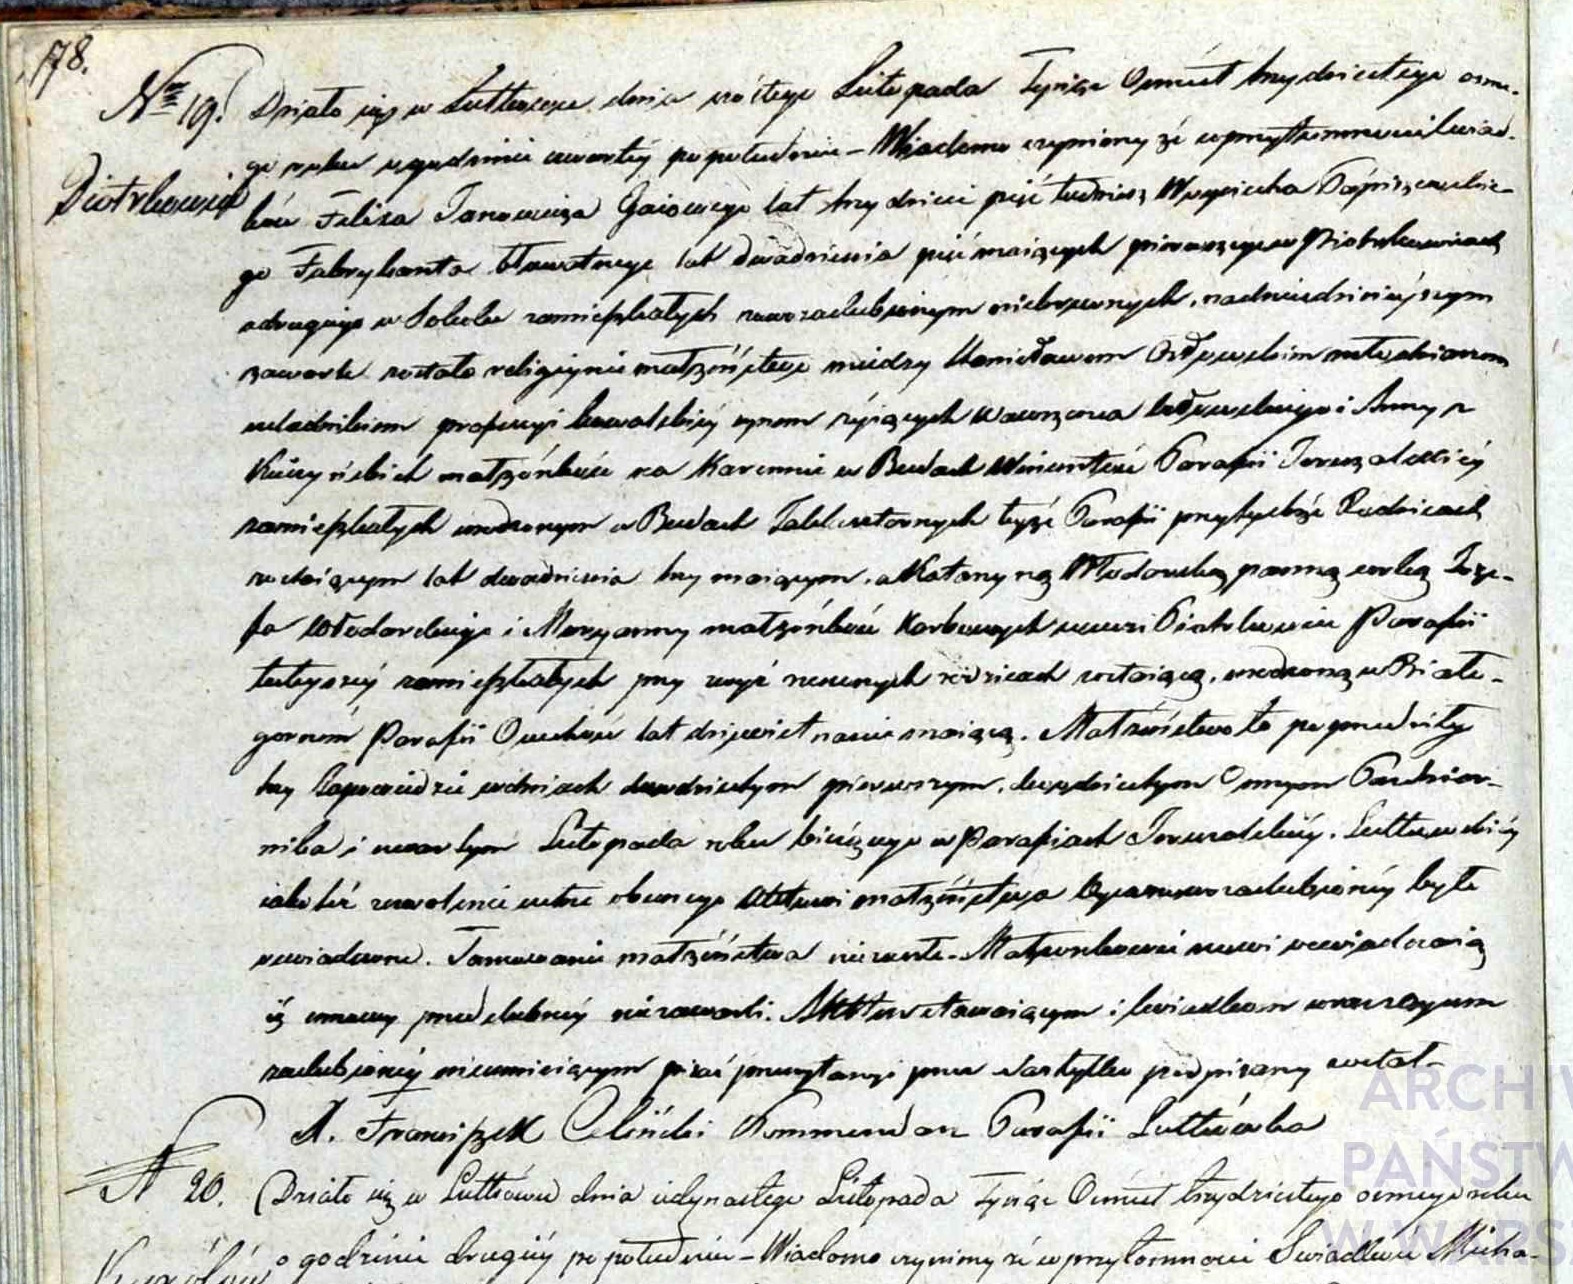 178.
Nro 19.
Piotrkowice
Działo się w Lutkowce dnia szóstego Listopada Tysiąc Ośmset trzydziestego osme-
go roku o godzinie czwartey po południu – Wiadomo czyniemy że w przytomności świad-
ków Felixa Janowicza Gaiowego lat trzydzieści pięć tudzież Woyciecha
go Fabrykanta lat dwadzieścia pięć maiących pierwszego w Piotrkowicach
a drugiego w zamieszkałych nowozaślubionym niekrewnych, na dniu dzisieyszym
zawarte zostało religiyne małżeństwo miedzy Stanisławem młodzianem
czeladnikiem professyi kowalskiey synem żyiących Wawrzeńca i Anny z
małżonków na Karczmie w Budach Parafii Jeruzalskiey
zamieszkałych urodzonym w Budach teyże Parafii przy tychże Rodzicach
zostaiącym lat dwadzieścia trzy maiącym, a Katarzyną Włodarską panną córką Joze-
fa Włodarskiego i Maryanny małżonków Karbowych we wsi Piotrkowice Parafii
tuteyszey zamieszkałych przy wyż rzeczonych rodzicach zostaiącą, urodzoną w Białe-
gornem Parafii lat dziewietnaście maiącą. Małżeństwo to poprzedziły
trzy Zapowiedzi w dniach dwudziestym pierwszym, dwudziestym Osmym Paździer-
nika i czwartym Listopada roku bieżącego w Parafiach Jeruzalskiey, Lutkowskiey
iako też zezwolenie ustne obecnego Aktowi małżeństwa Oyca nowozaślubioney było
oswiadczone. Tamowanie małżeństwa nie zaszło – Małżonkowie nowi oswiadczaią
iż umowy przedślubney niezawarli. Akt ten stawaiącym i świadkom oraz oycom
zaślubioney nieumieiącym pisać przeczytany i przez Nas tylko podpisany został –
X. Franciszek Celiński Kommendarz Parafii Lutkówka
N 20.
Działo się w Lutkówce dnia iedynastego Listopada Tysiąc Ośmset trzydziestego osmego roku
o godzinie drugiey po południu – Wiadomo czynimy że w przytomności Świadków Micha-
ARCHIW
PAŃSTW
W WARS